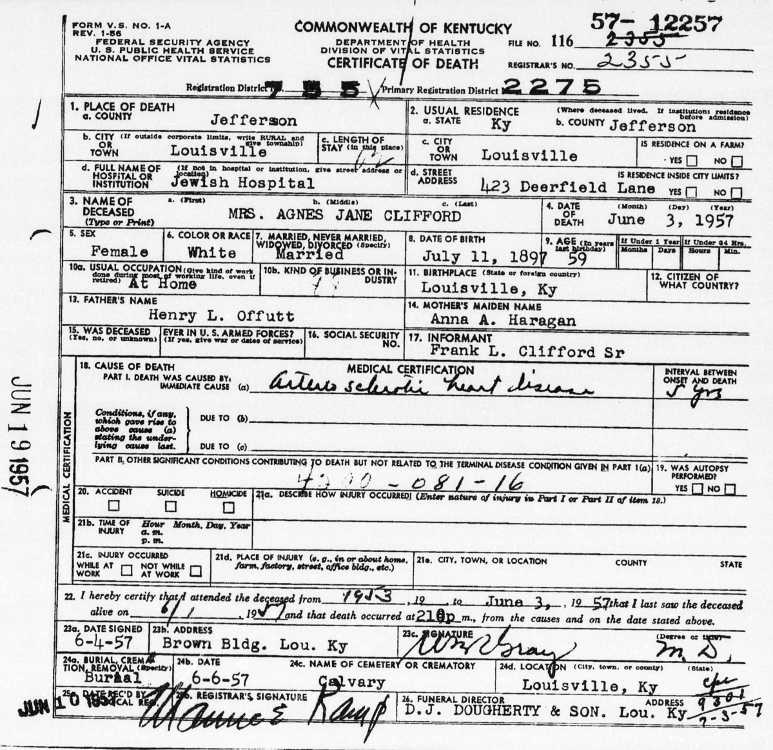 FORM V.S. NO. 1-A
REV. 1-56
FEDERAL SECURITY AGENCY
U. S. PUBLIC HEALTH SERVICE
NATIONAL OFFICE VITAL STATISTICS
COMMONWEALTH OF KENTUCKY
DEPARTMENT OF HEALTH
DIVISION OF VITAL STATISTICS
CERTIFICATE OF DEATH
57- 12257
FILE NO. 116 2355
REGISTRAR'S NO. 2355
Registration District No. 755 Primary Registration District 2275
1. PLACE OF DEATH
a. COUNTY Jefferson
2. USUAL RESIDENCE (Where deceased lived. If institution: residence before admission)
a. STATE Ky b. COUNTY Jefferson
b. CITY (If outside corporate limits, write RURAL and give township)
OR TOWN Louisville
c. LENGTH OF STAY (in this place)
c. CITY OR TOWN Louisville
IS RESIDENCE ON A FARM?
YES NO
d. FULL NAME OF HOSPITAL OR INSTITUTION (If not in hospital or institution, give street address or location)
Jewish Hospital
d. STREET ADDRESS 423 Deerfield Lane
IS RESIDENCE INSIDE CITY LIMITS?
YES NO
3. NAME OF DECEASED (Type or Print)
a. (First) b. (Middle) c. (Last)
MRS. AGNES JANE CLIFFORD
4. DATE OF DEATH (Month) (Day) (Year)
June 3, 1957
5. SEX
Female
6. COLOR OR RACE
White
7. MARRIED, NEVER MARRIED, WIDOWED, DIVORCED (Specify)
Married
8. DATE OF BIRTH
July 11, 1897
9. AGE (In years last birthday)
59
If Under 1 Year
Months Days
If Under 24 Hrs.
Hours Min.
10a. USUAL OCCUPATION (Give kind of work done during most of working life, even if retired)
At Home
10b. KIND OF BUSINESS OR INDUSTRY
11. BIRTHPLACE (State or foreign country)
Louisville, Ky
12. CITIZEN OF WHAT COUNTRY?
13. FATHER'S NAME
Henry L. Offutt
14. MOTHER'S MAIDEN NAME
Anna A. Haragan
15. WAS DECEASED EVER IN U. S. ARMED FORCES?
(Yes, no, or unknown) (If yes, give war or dates of service)
16. SOCIAL SECURITY NO.
17. INFORMANT
Frank L. Clifford Sr
MEDICAL CERTIFICATION
18. CAUSE OF DEATH
MEDICAL CERTIFICATION
INTERVAL BETWEEN ONSET AND DEATH
PART I. DEATH WAS CAUSED BY:
IMMEDIATE CAUSE (a) Arterio sclerotic heart disease 5 yrs
Conditions, if any, which gave rise to above cause (a) stating the underlying cause last.
DUE TO (b)
DUE TO (c)
PART II. OTHER SIGNIFICANT CONDITIONS CONTRIBUTING TO DEATH BUT NOT RELATED TO THE TERMINAL DISEASE CONDITION GIVEN IN PART I(a)
4200-081-16
19. WAS AUTOPSY PERFORMED?
YES NO
20. ACCIDENT SUICIDE HOMICIDE
21a. DESCRIBE HOW INJURY OCCURRED (Enter nature of injury in Part I or Part II of item 18.)
21b. TIME OF INJURY Hour Month, Day, Year
a. m.
p. m.
21c. INJURY OCCURRED
WHILE AT WORK NOT WHILE AT WORK
21d. PLACE OF INJURY (e. g., in or about home, farm, factory, street, office bldg., etc.)
21e. CITY, TOWN, OR LOCATION COUNTY STATE
22. I hereby certify that I attended the deceased from 1953, 19 to June 3, 1957 that I last saw the deceased
alive on 6/1, 1957 and that death occurred at 210p m., from the causes and on the date stated above.
23a. DATE SIGNED
6-4-57
23b. ADDRESS
Brown Bldg. Lou. Ky
23c. SIGNATURE (Degree or title)
M. D.
24a. BURIAL, CREMATION, REMOVAL (Specify)
Burial
24b. DATE
6-6-57
24c. NAME OF CEMETERY OR CREMATORY
Calvary
24d. LOCATION (City, town, or county) (State)
Louisville, Ky
25a. DATE REC'D BY LOCAL REG.
JUN 10 1957
25b. REGISTRAR'S SIGNATURE
26. FUNERAL DIRECTOR ADDRESS
D.J. DOUGHERTY & SON. Lou. Ky
7-3-57
JUN 19 1957